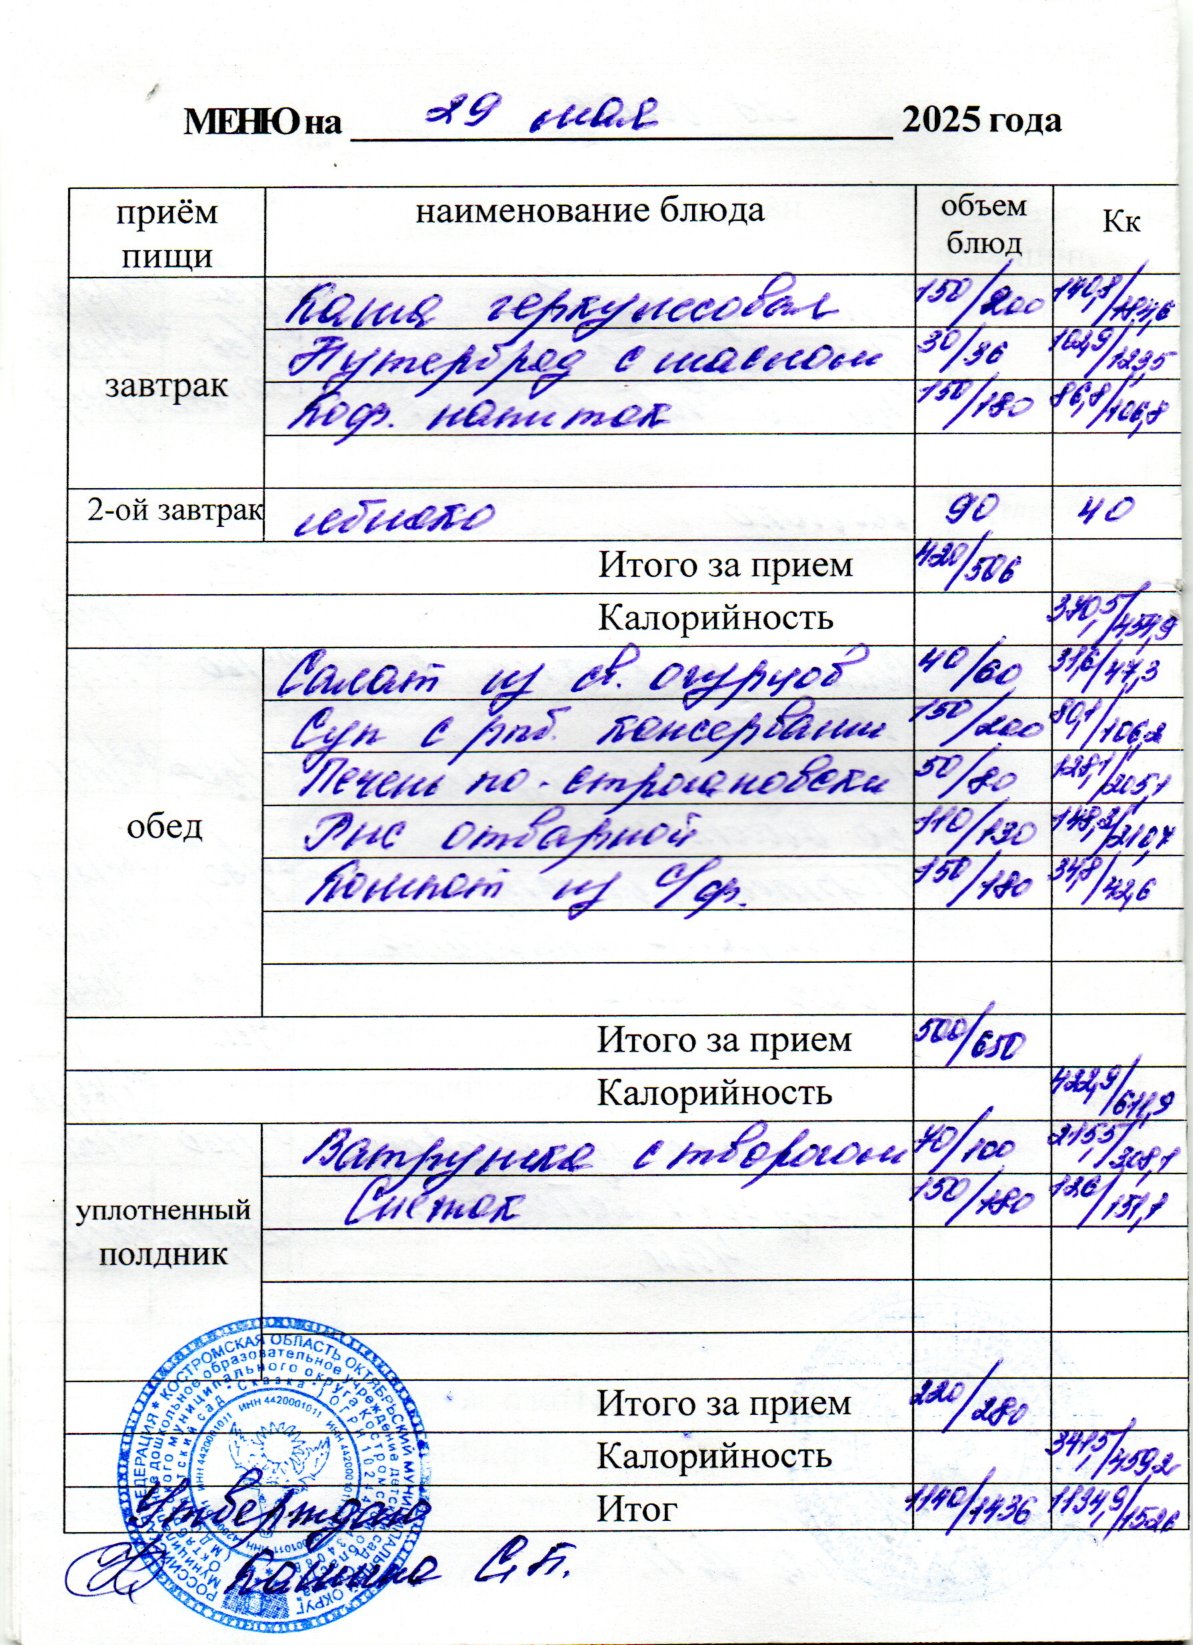 МЕНЮ на 29 мая 2025 года
приём пищи наименование блюда объем блюд Кк
завтрак
Каша геркулесовая 150/200 140,8/184,6
Бутерброд с маслом 30/36 102,9/123,5
Коф. напиток 150/180 86,8/106,8
2-ой завтрак яблоко 90 40
Итого за прием 420/506
Калорийность 370,5/454,9
обед
Салат из св. огурцов 40/60 31,6/47,3
Суп с рыб. консервами 150/200 80,1/106,2
Печень по-строгановски 50/80 128,1/205,1
Рис отварной 110/130 148,3/210,7
Компот из с/ф. 150/180 34,8/42,6
Итого за прием 500/650
Калорийность 422,9/611,9
уплотненный полдник
Ватрушка с творогом 70/100 215,5/308,1
Снежок 150/180 126/151,1
Итого за прием 220/280
Калорийность 341,5/459,2
Итог 1140/1436 1134,9/1526
РОССИЙСКАЯ ФЕДЕРАЦИЯ * КОСТРОМСКАЯ ОБЛАСТЬ ОКТЯБРЬСКИЙ МУНИЦИПАЛЬНЫЙ ОКРУГ
дошкольное образовательное учреждение детский сад
муниципального округа Костромской области
детский сад "Сказка"
ИНН 4420001011
Утверждаю
Канина С.П.